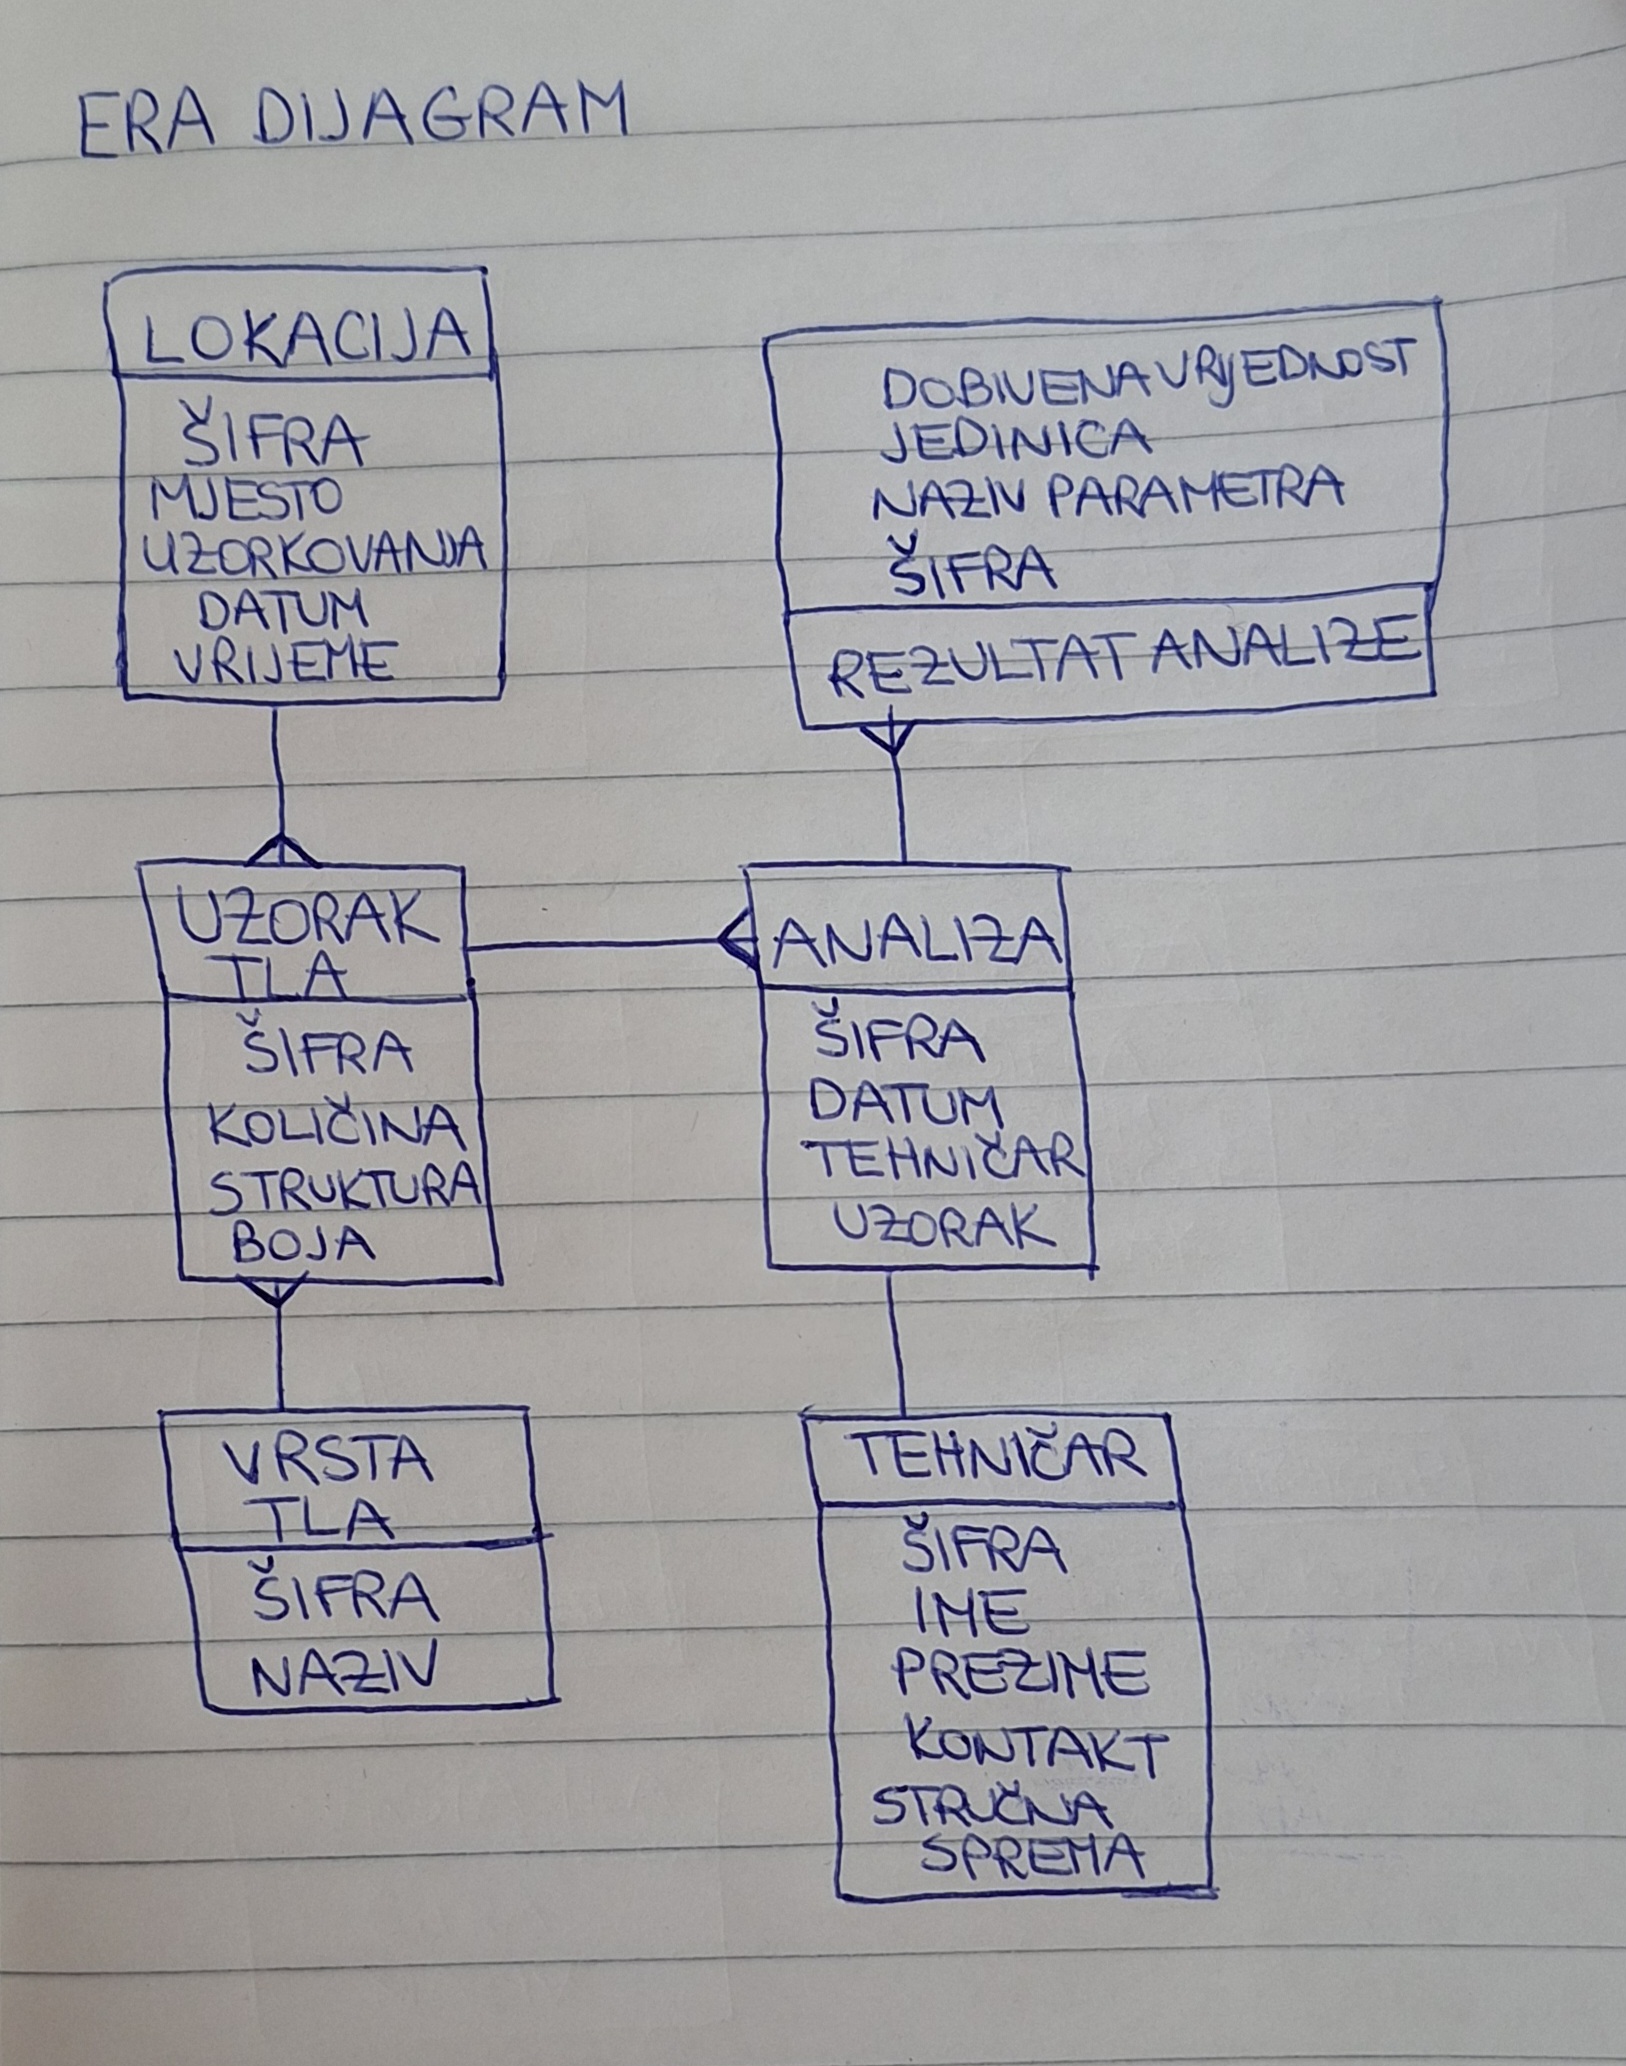 ERA DIJAGRAM
LOKACIJA
ŠIFRA
MJESTO
UZORKOVANJA
DATUM
VRIJEME
DOBIVENA VRIJEDNOST
JEDINICA
NAZIV PARAMETRA
ŠIFRA
REZULTAT ANALIZE
UZORAK
TLA
ŠIFRA
KOLIČINA
STRUKTURA
BOJA
ANALIZA
ŠIFRA
DATUM
TEHNIČAR
UZORAK
VRSTA
TLA
ŠIFRA
NAZIV
TEHNIČAR
ŠIFRA
IME
PREZIME
KONTAKT
STRUČNA
SPREMA